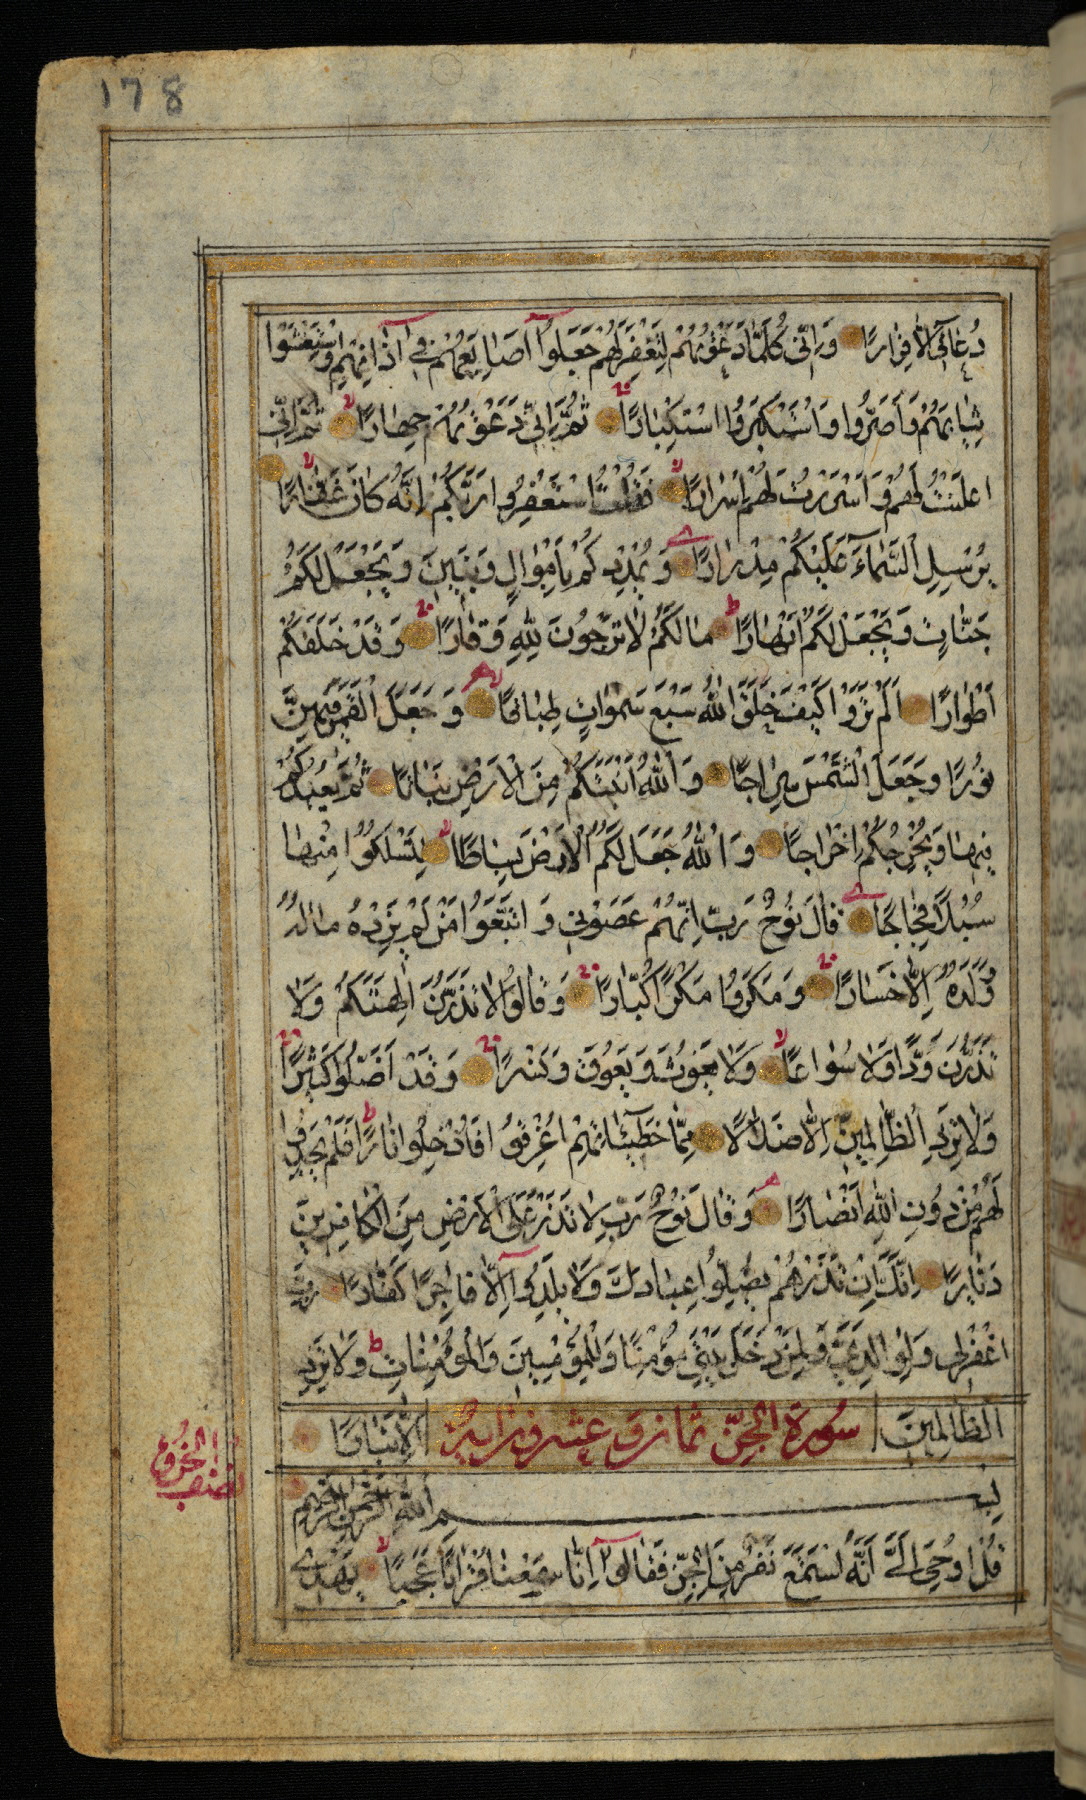 178
دُعَائِي إِلَّا فِرَارًا وَإِنِّي كُلَّمَا دَعَوْتُهُمْ لِتَغْفِرَ لَهُمْ جَعَلُوا أَصَابِعَهُمْ فِي آذَانِهِمْ وَاسْتَغْشَوْا
ثِيَابَهُمْ وَأَصَرُّوا وَاسْتَكْبَرُوا اسْتِكْبَارًا ثُمَّ إِنِّي دَعَوْتُهُمْ جِهَارًا ثُمَّ إِنِّي
اعلَنْتُ لَهُمْ وَاَسْرَرْتُ لَهُمْ اِسْرَارًا فَقُلْتُ اسْتَغْفِرُوا رَبَّكُمْ اِنَّهُ كَانَ غَفَّارًا
يُرْسِلِ السَّمَآءَ عَلَيْكُمْ مِدْرَارًا وَيُمْدِدْكُمْ بِاَمْوَالٍ وَبَنِينَ وَيَجْعَلْ لَكُمْ
جَنَّاتٍ وَيَجْعَلْ لَكُمْ اَنْهَارًا مَا لَكُمْ لَا تَرْجُونَ لِلّٰهِ وَقَارًا وَقَدْ خَلَقَكُمْ
اَطْوَارًا اَلَمْ تَرَوْا كَيْفَ خَلَقَ اللّٰهُ سَبْعَ سَمٰوَاتٍ طِبَاقًا وَجَعَلَ الْقَمَرَ فِيهِنَّ
نُورًا وَجَعَلَ الشَّمْسَ سِرَاجًا وَاللّٰهُ اَنْبَتَكُمْ مِنَ الْاَرْضِ نَبَاتًا ثُمَّ يُعِيدُكُمْ
فِيهَا وَيُخْرِجُكُمْ اِخْرَاجًا وَاللّٰهُ جَعَلَ لَكُمُ الْاَرْضَ بِسَاطًا لِتَسْلُكُوا مِنْهَا
سُبُلًا فِجَاجًا قَالَ نُوحٌ رَبِّ اِنَّهُمْ عَصَوْنِي وَاتَّبَعُوا مَنْ لَمْ يَزِدْهُ مَالُهُ
وَوَلَدُهُ اِلَّا خَسَارًا وَمَكَرُوا مَكْرًا كُبَّارًا وَقَالُوا لَا تَذَرُنَّ اٰلِهَتَكُمْ وَلَا
تَذَرُنَّ وَدًّا وَلَا سُوَاعًا وَلَا يَغُوثَ وَيَعُوقَ وَنَسْرًا وَقَدْ اَضَلُّوا كَثِيرًا
وَلَا تَزِدِ الظَّالِمِينَ اِلَّا ضَلَالًا مِمَّا خَطِيئَاتِهِمْ اُغْرِقُوا فَاُدْخِلُوا نَارًا فَلَمْ يَجِدُوا
لَهُمْ مِنْ دُونِ اللّٰهِ اَنْصَارًا وَقَالَ نُوحٌ رَبِّ لَا تَذَرْ عَلَى الْاَرْضِ مِنَ الْكَافِرِينَ
دَيَّارًا اِنَّكَ اِنْ تَذَرْهُمْ يُضِلُّوا عِبَادَكَ وَلَا يَلِدُوا اِلَّا فَاجِرًا كَفَّارًا رَبِّ
اغْفِرْ لِي وَلِوَالِدَيَّ وَلِمَنْ دَخَلَ بَيْتِيَ مُؤْمِنًا وَلِلْمُؤْمِنِينَ وَالْمُؤْمِنَاتِ وَلَا تَزِدِ
الظَّالِمِينَ سُورَةُ الْجِنِّ ثمان وعشرون اية اِلَّا تَبَارًا
نصف الحزب
بِسْمِ اللّٰهِ الرَّحْمٰنِ الرَّحِيمِ
قُلْ اُوحِيَ اِلَيَّ اَنَّهُ اسْتَمَعَ نَفَرٌ مِنَ الْجِنِّ فَقَالُوا اِنَّا سَمِعْنَا قُرْاٰنًا عَجَبًا يَهْدِي